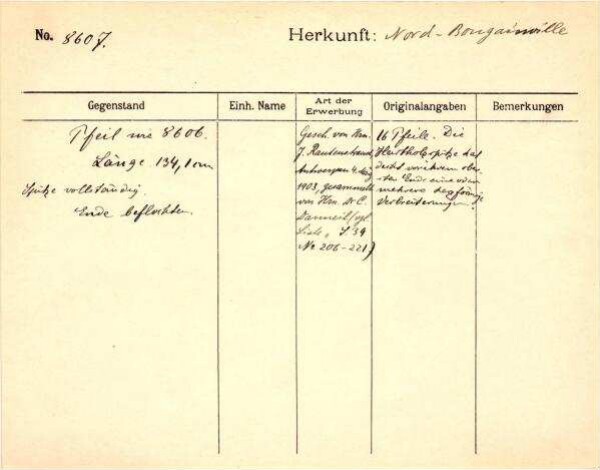 No. 8607.
Herkunft: Nord-Bougainville
Gegenstand
Einh. Name
Art der
Erwerbung
Originalangaben
Bemerkungen
Pfeil wie 8606.
Länge 134,1 cm
Spitze vollständig.
Ende beflochten.
Gesch. von Hrn.
J. Rautenstrauch,
Antwerpen
1903, gesammelt
von Hrn. Dr C.
Danneil (vgl.
Liste, S. 39
No 206-221)
16 Pfeile. Die
Hartholzspitze hat
dicht vor ihrem obe-
ren Ende eine oder
mehrere
Verbreiterungen.